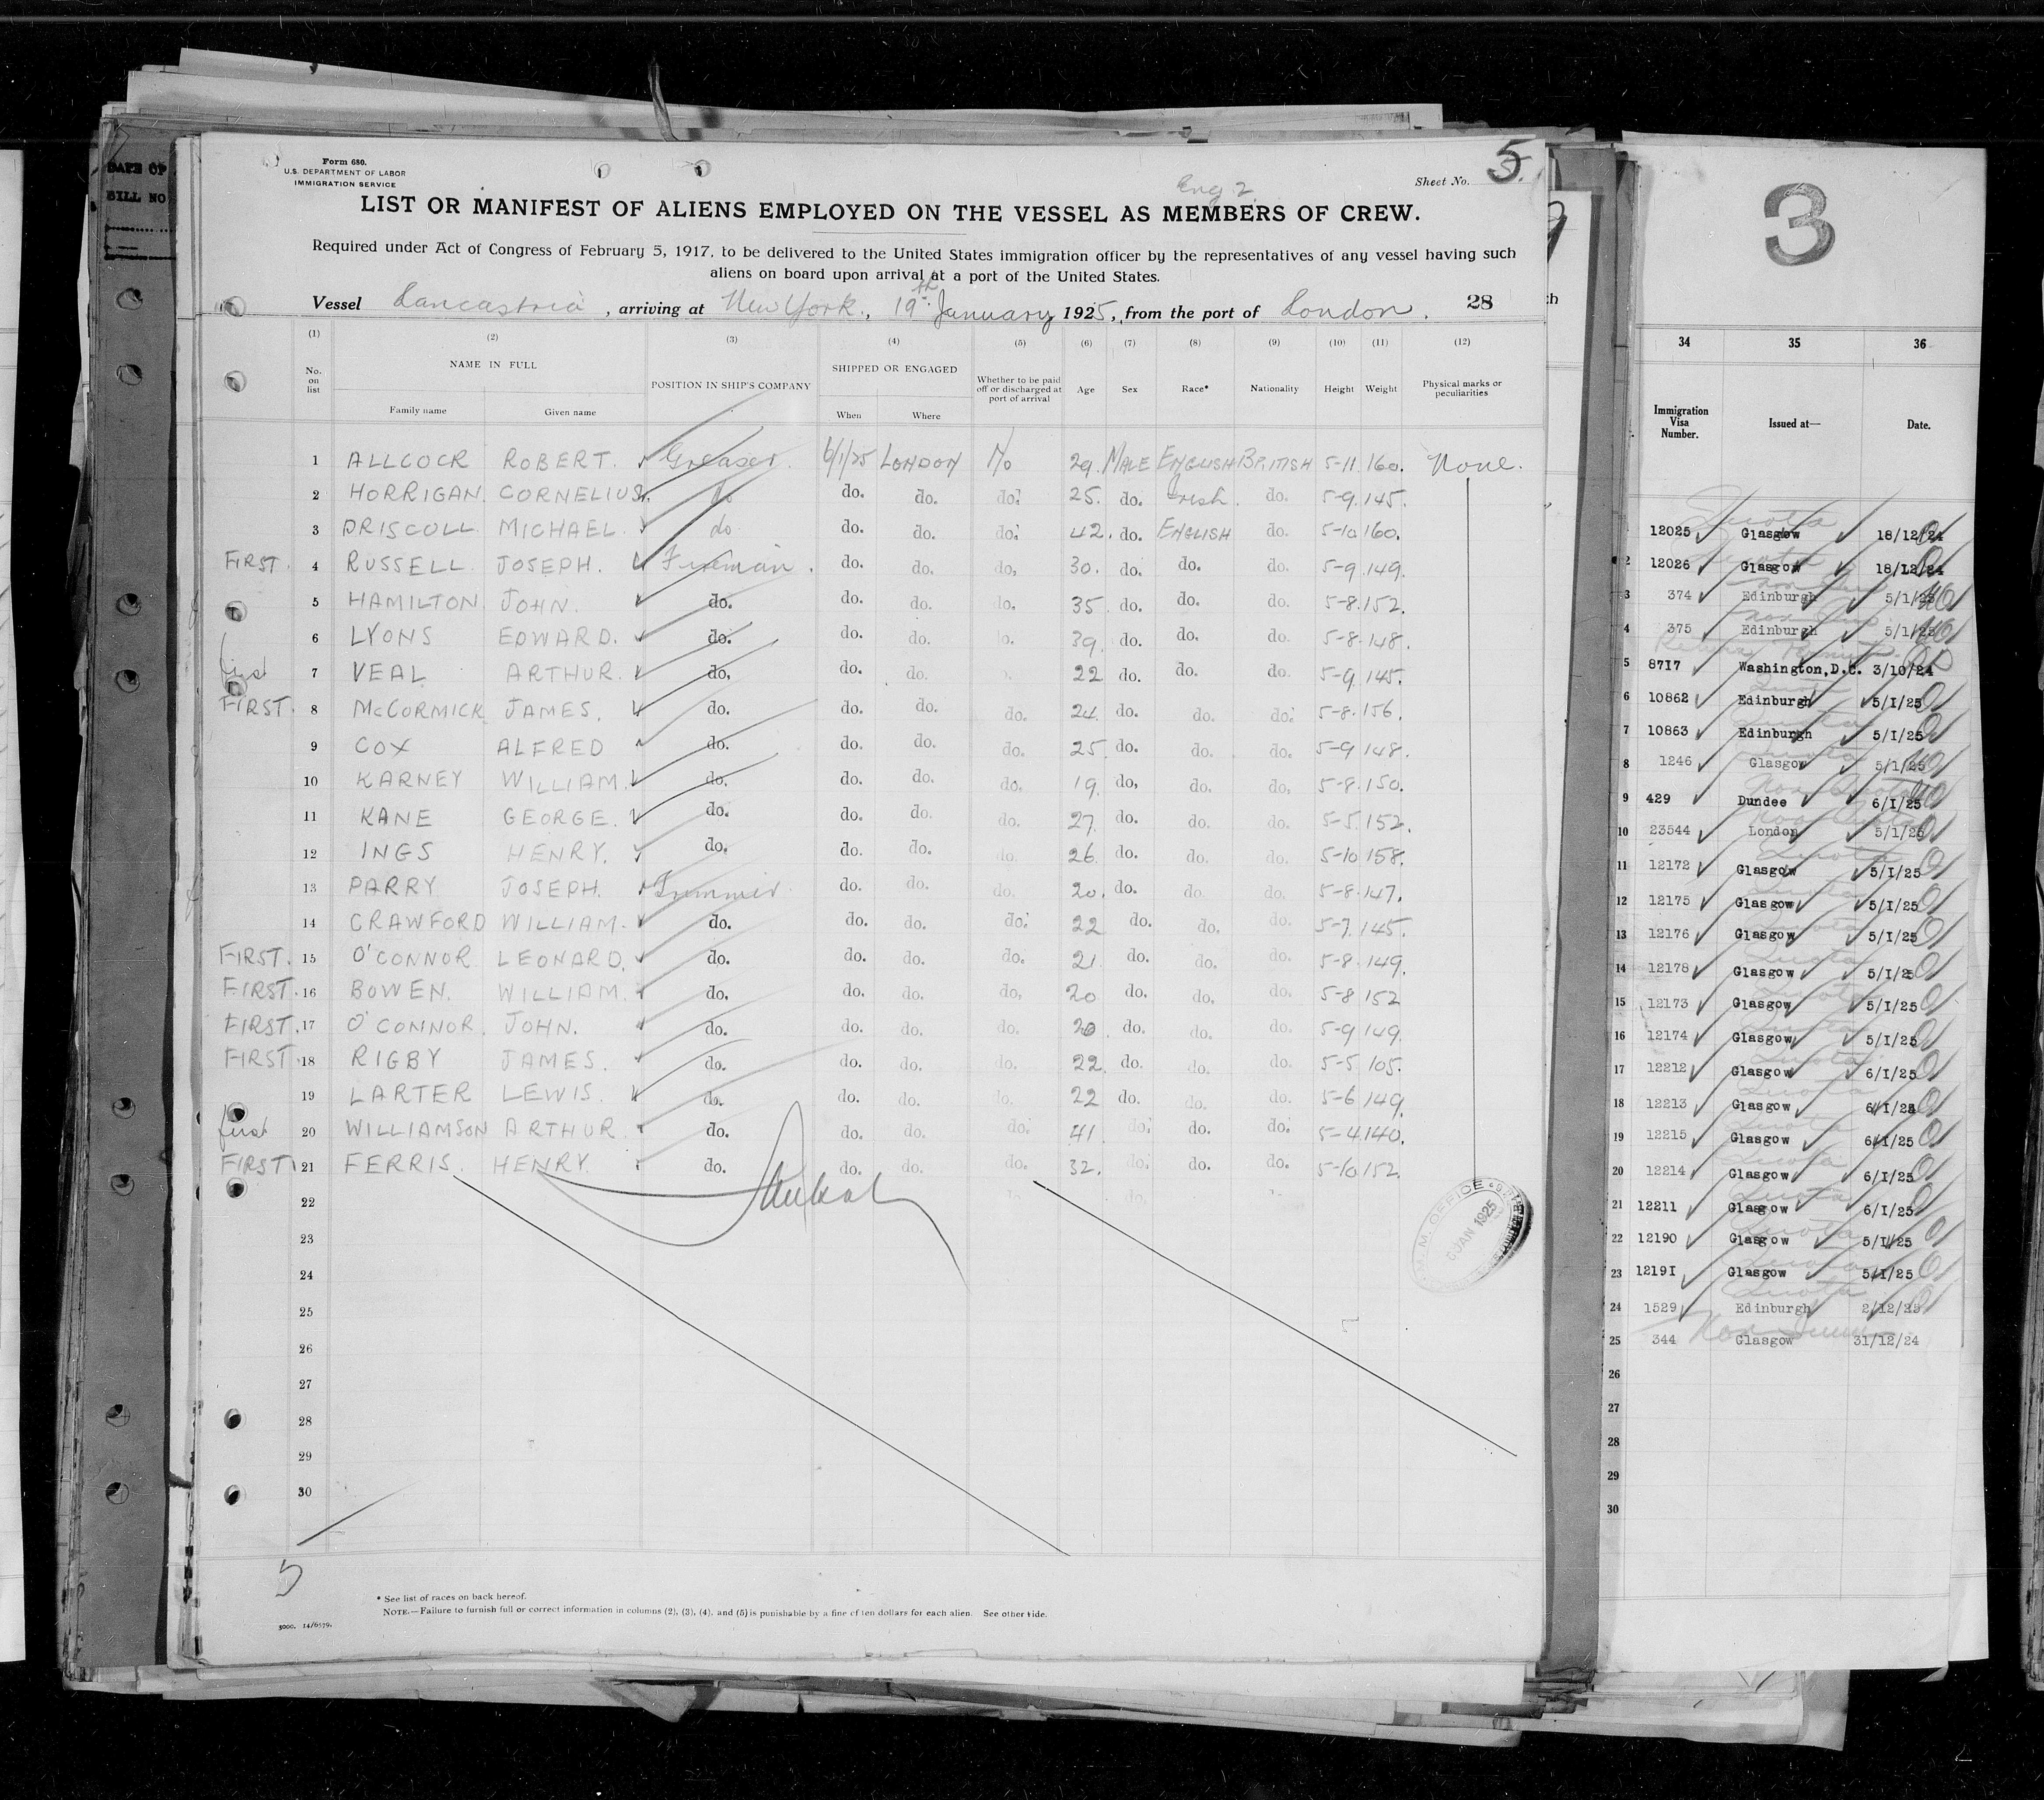 DATE OF
BILL NO
Form 680.
U.S. DEPARTMENT OF LABOR
IMMIGRATION SERVICE
Eng 2
Sheet No. 5.
LIST OR MANIFEST OF ALIENS EMPLOYED ON THE VESSEL AS MEMBERS OF CREW.
Required under Act of Congress of February 5, 1917, to be delivered to the United States immigration officer by the representatives of any vessel having such
aliens on board upon arrival at a port of the United States.
Vessel Lancastria, arriving at New York, 19th January 1925, from the port of London. 28
(1) (2) (3) (4) (5) (6) (7) (8) (9) (10) (11) (12)
No. on list NAME IN FULL POSITION IN SHIP'S COMPANY SHIPPED OR ENGAGED Whether to be paid off or discharged at port of arrival Age Sex Race* Nationality Height Weight Physical marks or peculiarities
Family name Given name When Where
1 ALLCOCK ROBERT. Greaser. 6/1/25 LONDON No 29. MALE ENGLISH BRITISH 5-11. 160. None.
2 HORRIGAN. CORNELIUS. do do. do. do. 25. do. Irish. do. 5-9. 145.
3 DRISCOLL. MICHAEL. do do. do. do. 42. do. ENGLISH do. 5-10 160.
FIRST. 4 RUSSELL. JOSEPH. Fireman. do. do. do. 30. do. do. do. 5-9. 149.
5 HAMILTON. JOHN. do. do. do. do. 35 do. do. do. 5-8. 152.
6 LYONS EDWARD. do. do. do. do. 39. do. do. do. 5-8. 148.
first 7 VEAL ARTHUR. do. do. do. 22 do. do. do. 5-9. 145.
FIRST. 8 McCORMICK JAMES. do. do. do. do. 24. do. do. do. 5-8. 156.
9 COX ALFRED do. do. do. do. 25. do. do. do. 5-9 148.
10 KARNEY WILLIAM. do. do. do. do. 19. do. do. do. 5-8. 150.
11 KANE GEORGE. do. do. do. do. 27. do. do. do. 5-5. 152.
12 INGS HENRY. do. do. do. do. 26. do. do. do. 5-10 158.
13 PARRY JOSEPH. Trimmer. do. do. do. 20. do. do. do. 5-8. 147.
14 CRAWFORD WILLIAM. do. do. do. do. 22 do. do. do. 5-7. 145.
FIRST. 15 O'CONNOR LEONARD. do. do. do. do. 21 do. do. do. 5-8. 149.
FIRST. 16 BOWEN. WILLIAM. do. do. do. do. 20 do. do. do. 5-8 152
FIRST. 17 O'CONNOR. JOHN. do. do. do. do. 20. do. do. do. 5-9 149.
FIRST. 18 RIGBY JAMES. do. do. do. do. 22. do. do. do. 5-5 105.
19 LARTER LEWIS. do. do. do. do. 22 do. do. do. 5-6 149.
first 20 WILLIAMSON ARTHUR. do. do. do. do. 41 do. do. do. 5-4 140.
FIRST 21 FERRIS. HENRY. do. do. do. do. 32. do. do. do. 5-10 152.
22
23
24
25
26
27
28
29
30
M.M. OFFICE
6 JAN 1925
5
* See list of races on back hereof.
NOTE.—Failure to furnish full or correct information in columns (2), (3), (4), and (5) is punishable by a fine of ten dollars for each alien. See other side.
3000. 14/6579.
3
34 35 36
Immigration Visa Number. Issued at— Date.
12025 Quota Glasgow 18/12/24
2 12026 Quota Glasgow 18/12/24
3 374 Edinburgh 5/1/25
4 375 Edinburgh 5/1/25
5 8717 Return Permit Washington,D.C. 3/10/24
6 10862 Quota Edinburgh 5/1/25
7 10863 Quota Edinburgh 5/1/25
8 1246 Quota Glasgow 5/1/25
9 429 Non Quota Dundee 6/1/25
10 23544 Non Quota London 5/1/25
11 12172 Quota Glasgow 5/1/25
12 12175 Quota Glasgow 5/1/25
13 12176 Quota Glasgow 5/1/25
14 12178 Quota Glasgow 5/1/25
15 12173 Quota Glasgow 5/1/25
16 12174 Quota Glasgow 5/1/25
17 12212 Quota Glasgow 6/1/25
18 12213 Quota Glasgow 6/1/25
19 12215 Quota Glasgow 6/1/25
20 12214 Quota Glasgow 6/1/25
21 12211 Quota Glasgow 6/1/25
22 12190 Quota Glasgow 5/1/25
23 12191 Quota Glasgow 5/1/25
24 1529 Quota Edinburgh 2/12/25
25 344 Non Glasgow 31/12/24
26
27
28
29
30